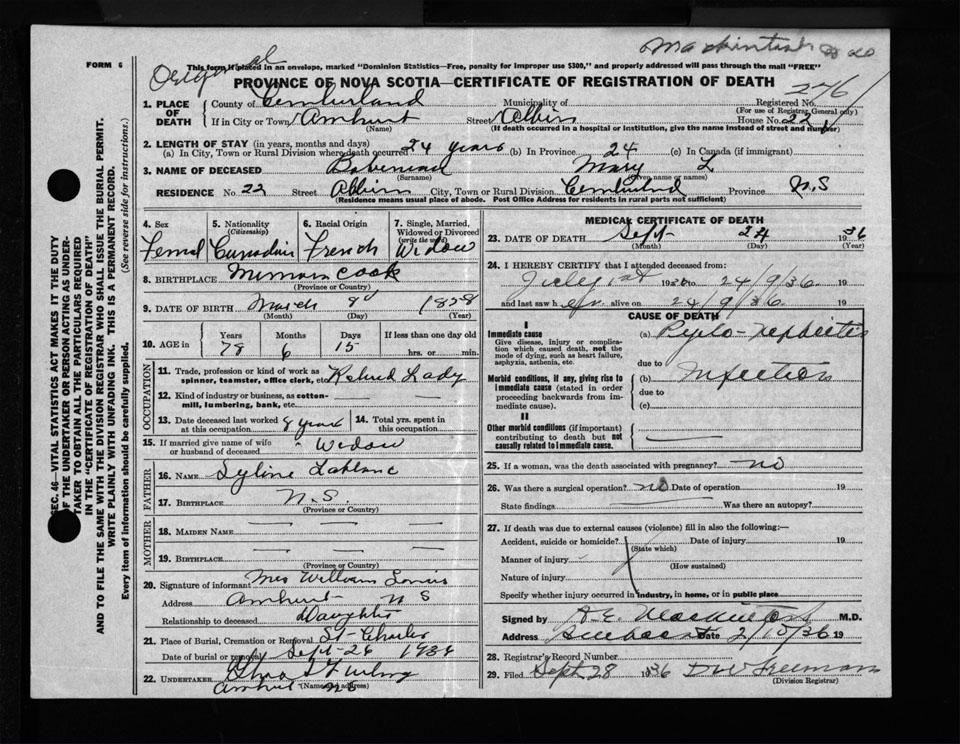 Mackintosh
Original
FORM 6
This form if placed in an envelope, marked "Dominion Statistics—Free, penalty for improper use $300," and properly addressed will pass through the mail "FREE"
PROVINCE OF NOVA SCOTIA—CERTIFICATE OF REGISTRATION OF DEATH
1. PLACE OF DEATH
County of Cumberland Municipality of Registered No.
(For use of Registrar General only)
If in City or Town Amherst Street House No. 22
(Name) (If death occurred in a hospital or institution, give the name instead of street and number)
2. LENGTH OF STAY (in years, months and days)
(a) In City, Town or Rural Division where death occurred 24 years (b) In Province 24 (c) In Canada (if immigrant)
3. NAME OF DECEASED Mary L
(Surname) (Given name or names)
RESIDENCE No. 22 Street City, Town or Rural Division Province N.S
(Residence means usual place of abode. Post Office Address for residents in rural parts not sufficient)
4. Sex
5. Nationality (Citizenship)
6. Racial Origin
7. Single, Married, Widowed or Divorced (write the word)
Femal Canadian French Widow
8. BIRTHPLACE
(Province or Country)
9. DATE OF BIRTH March 9
(Month) (Day) (Year)
10. AGE in
Years Months Days If less than one day old
78 6 15 hrs. or min.
OCCUPATION
11. Trade, profession or kind of work as spinner, teamster, office clerk, etc. Lady
12. Kind of industry or business, as cotton-mill, lumbering, bank, etc.
13. Date deceased last worked at this occupation 8 years
14. Total yrs. spent in this occupation
15. If married give name of wife or husband of deceased Widow
FATHER
16. NAME
17. BIRTHPLACE N.S.
(Province or Country)
MOTHER
18. MAIDEN NAME
19. BIRTHPLACE
(Province or Country)
20. Signature of informant Mrs William
Address Amherst N S
Relationship to deceased Daughter
21. Place of Burial, Cremation or Removal St Charles
Date of burial or removal Sept-26
22. UNDERTAKER
(Name and address)
MEDICAL CERTIFICATE OF DEATH
23. DATE OF DEATH Sept 24 1936
(Month) (Day) (Year)
24. I HEREBY CERTIFY that I attended deceased from:
July 1st 1936 to 24/9/36
and last saw her alive on 24/9/36
CAUSE OF DEATH
I
Immediate cause
Give disease, injury or complication which caused death, not the mode of dying, such as heart failure, asphyxia, asthenia, etc.
(a) Pyelo-nephritis
due to
Morbid conditions, if any, giving rise to immediate cause (stated in order proceeding backwards from immediate cause)
(b) Infection
due to
(c)
II
Other morbid conditions (if important) contributing to death but not causally related to immediate cause.
25. If a woman, was the death associated with pregnancy? no
26. Was there a surgical operation? no Date of operation 19
State findings Was there an autopsy?
27. If death was due to external causes (violence) fill in also the following:—
Accident, suicide or homicide? Date of injury 19
(State which)
Manner of injury
(How sustained)
Nature of injury
Specify whether injury occurred in industry, in home, or in public place
Signed by A.E. Mackintosh M.D.
Address Date 2/10/36 19
28. Registrar's Record Number
29. Filed Sept 28 1936 Freeman
(Division Registrar)
SEC. 46—VITAL STATISTICS ACT MAKES IT THE DUTY
OF THE UNDERTAKER OR PERSON ACTING AS UNDER-
TAKER TO OBTAIN ALL THE PARTICULARS REQUIRED
IN THE "CERTIFICATE OF REGISTRATION OF DEATH"
AND TO FILE THE SAME WITH THE DIVISION REGISTRAR WHO SHALL ISSUE THE BURIAL PERMIT.
WRITE PLAINLY WITH UNFADING INK. THIS IS A PERMANENT RECORD.
Every item of information should be carefully supplied. (See reverse side for instructions.)